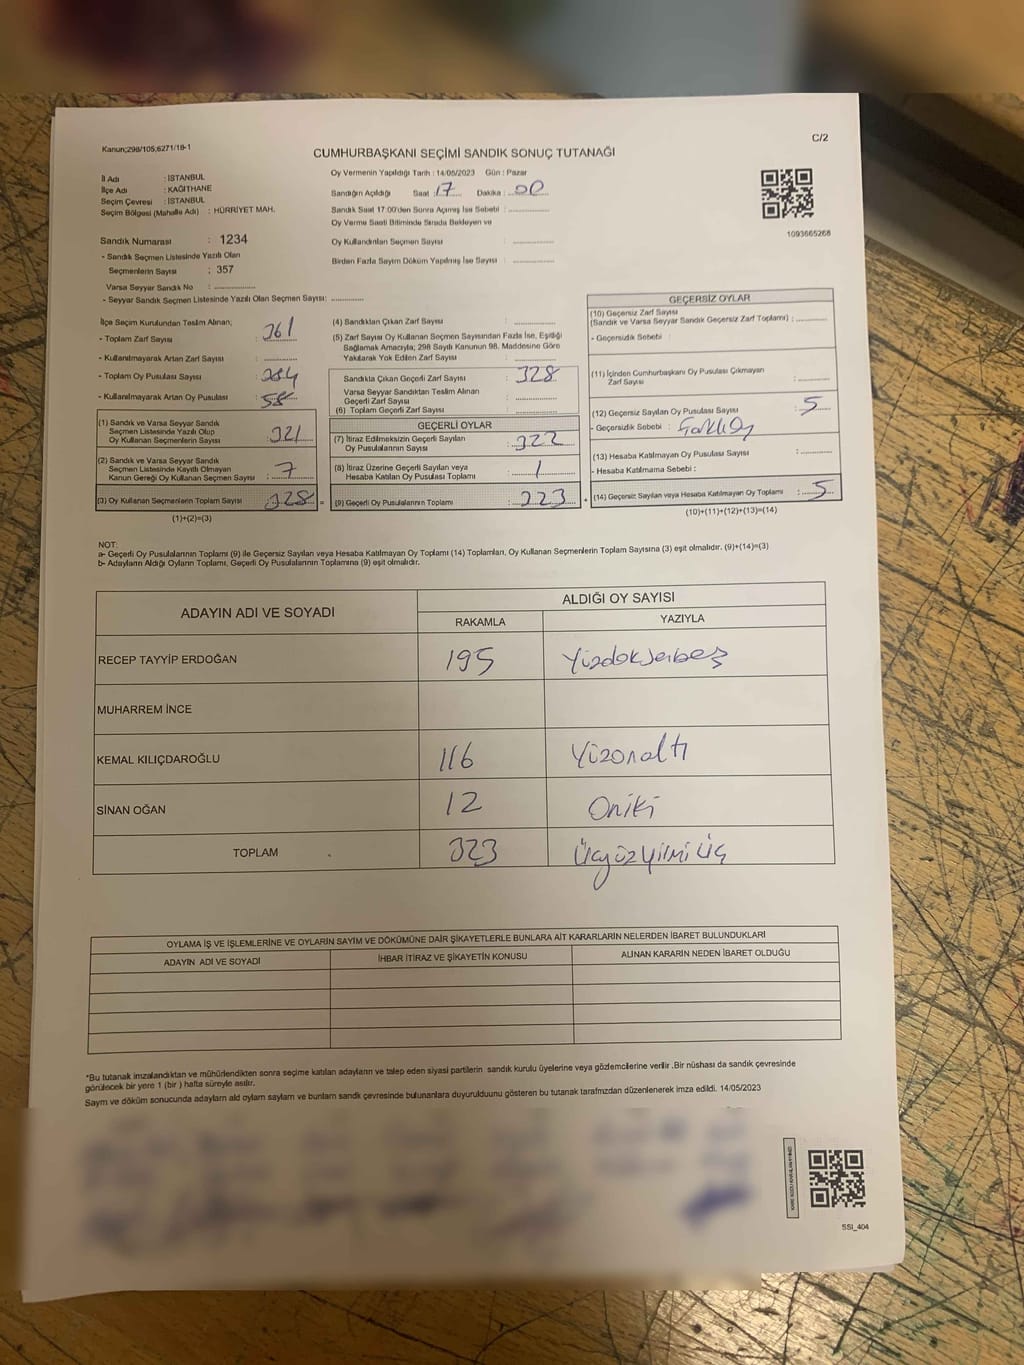 C/2
Kanun;298/105;6271/18-1
CUMHURBAŞKANI SEÇİMİ SANDIK SONUÇ TUTANAĞI
İl Adı : İSTANBUL
İlçe Adı : KAĞITHANE
Seçim Çevresi : İSTANBUL
Seçim Bölgesi (Mahalle Adı) : HÜRRİYET MAH.
Sandık Numarası : 1234
- Sandık Seçmen Listesinde Yazılı Olan
Seçmenlerin Sayısı : 357
Varsa Seyyar Sandık No : ..............
- Seyyar Sandık Seçmen Listesinde Yazılı Olan Seçmen Sayısı: ...........
Oy Vermenin Yapıldığı Tarih : 14/05/2023 Gün : Pazar
Sandığın Açıldığı Saat : 17 Dakika : 00
Sandık Saat 17:00'den Sonra Açılmış İse Sebebi : ..............
Oy Verme Saati Bitiminde Sırada Bekleyen ve
Oy Kullandırılan Seçmen Sayısı : ..............
Birden Fazla Sayım Döküm Yapılmış İse Sayısı : ..............
1093665268
İlçe Seçim Kurulundan Teslim Alınan;
- Toplam Zarf Sayısı : 361
- Kullanılmayarak Artan Zarf Sayısı : ..............
- Toplam Oy Pusulası Sayısı :
- Kullanılmayarak Artan Oy Pusulası :
(1) Sandık ve Varsa Seyyar Sandık
Seçmen Listesinde Yazılı Olup
Oy Kullanan Seçmenlerin Sayısı : 321
(2) Sandık ve Varsa Seyyar Sandık
Seçmen Listesinde Kayıtlı Olmayan
Kanun Gereği Oy Kullanan Seçmen Sayısı : 7
(3) Oy Kullanan Seçmenlerin Toplam Sayısı : 328 =
(1)+(2)=(3)
(4) Sandıktan Çıkan Zarf Sayısı : ..............
(5) Zarf Sayısı Oy Kullanan Seçmen Sayısından Fazla İse, Eşitliği
Sağlamak Amacıyla; 298 Sayılı Kanunun 98. Maddesine Göre
Yakılarak Yok Edilen Zarf Sayısı : ..............
Sandıkta Çıkan Geçerli Zarf Sayısı : 328
Varsa Seyyar Sandıktan Teslim Alınan
Geçerli Zarf Sayısı : ..............
(6) Toplam Geçerli Zarf Sayısı : ..............
GEÇERLİ OYLAR
(7) İtiraz Edilmeksizin Geçerli Sayılan
Oy Pusulalarının Sayısı : 322
(8) İtiraz Üzerine Geçerli Sayılan veya
Hesaba Katılan Oy Pusulası Toplamı : 1
(9) Geçerli Oy Pusulalarının Toplamı : 323 +
GEÇERSİZ OYLAR
(10) Geçersiz Zarf Sayısı
(Sandık ve Varsa Seyyar Sandık Geçersiz Zarf Toplamı) : ...........
- Geçersizlik Sebebi :
(11) İçinden Cumhurbaşkanı Oy Pusulası Çıkmayan
Zarf Sayısı : ...........
(12) Geçersiz Sayılan Oy Pusulası Sayısı : 5
- Geçersizlik Sebebi :
(13) Hesaba Katılmayan Oy Pusulası Sayısı : ...........
- Hesaba Katılmama Sebebi :
(14) Geçersiz Sayılan veya Hesaba Katılmayan Oy Toplamı : 5
(10)+(11)+(12)+(13)=(14)
NOT:
a- Geçerli Oy Pusulalarının Toplamı (9) ile Geçersiz Sayılan veya Hesaba Katılmayan Oy Toplamı (14) Toplamları, Oy Kullanan Seçmenlerin Toplam Sayısına (3) eşit olmalıdır. (9)+(14)=(3)
b- Adayların Aldığı Oyların Toplamı, Geçerli Oy Pusulalarının Toplamına (9) eşit olmalıdır.
ADAYIN ADI VE SOYADI
ALDIĞI OY SAYISI
RAKAMLA YAZIYLA
RECEP TAYYİP ERDOĞAN 195 Yüzdoksanbeş
MUHARREM İNCE
KEMAL KILIÇDAROĞLU 116 Yüzonaltı
SİNAN OĞAN 12 Oniki
TOPLAM 323 Üçyüzyirmi üç
OYLAMA İŞ VE İŞLEMLERİNE VE OYLARIN SAYIM VE DÖKÜMÜNE DAİR ŞİKAYETLERLE BUNLARA AİT KARARLARIN NELERDEN İBARET BULUNDUKLARI
ADAYIN ADI VE SOYADI İHBAR İTİRAZ VE ŞİKAYETİN KONUSU ALINAN KARARIN NEDEN İBARET OLDUĞU
*Bu tutanak imzalandıktan ve mühürlendikten sonra seçime katılan adayların ve talep eden siyasi partilerin sandık kurulu üyelerine veya gözlemcilerine verilir .Bir nüshası da sandık çevresinde
görülecek bir yere 1 (bir ) hafta süreyle asılır.
Sayım ve döküm sonucunda adayların aldı oyların sayıların ve bunların sandık çevresinde bulunanlara duyurulduunu gösteren bu tutanak tarafımızdan düzenlenerek imza edildi. 14/05/2023
SSI_404